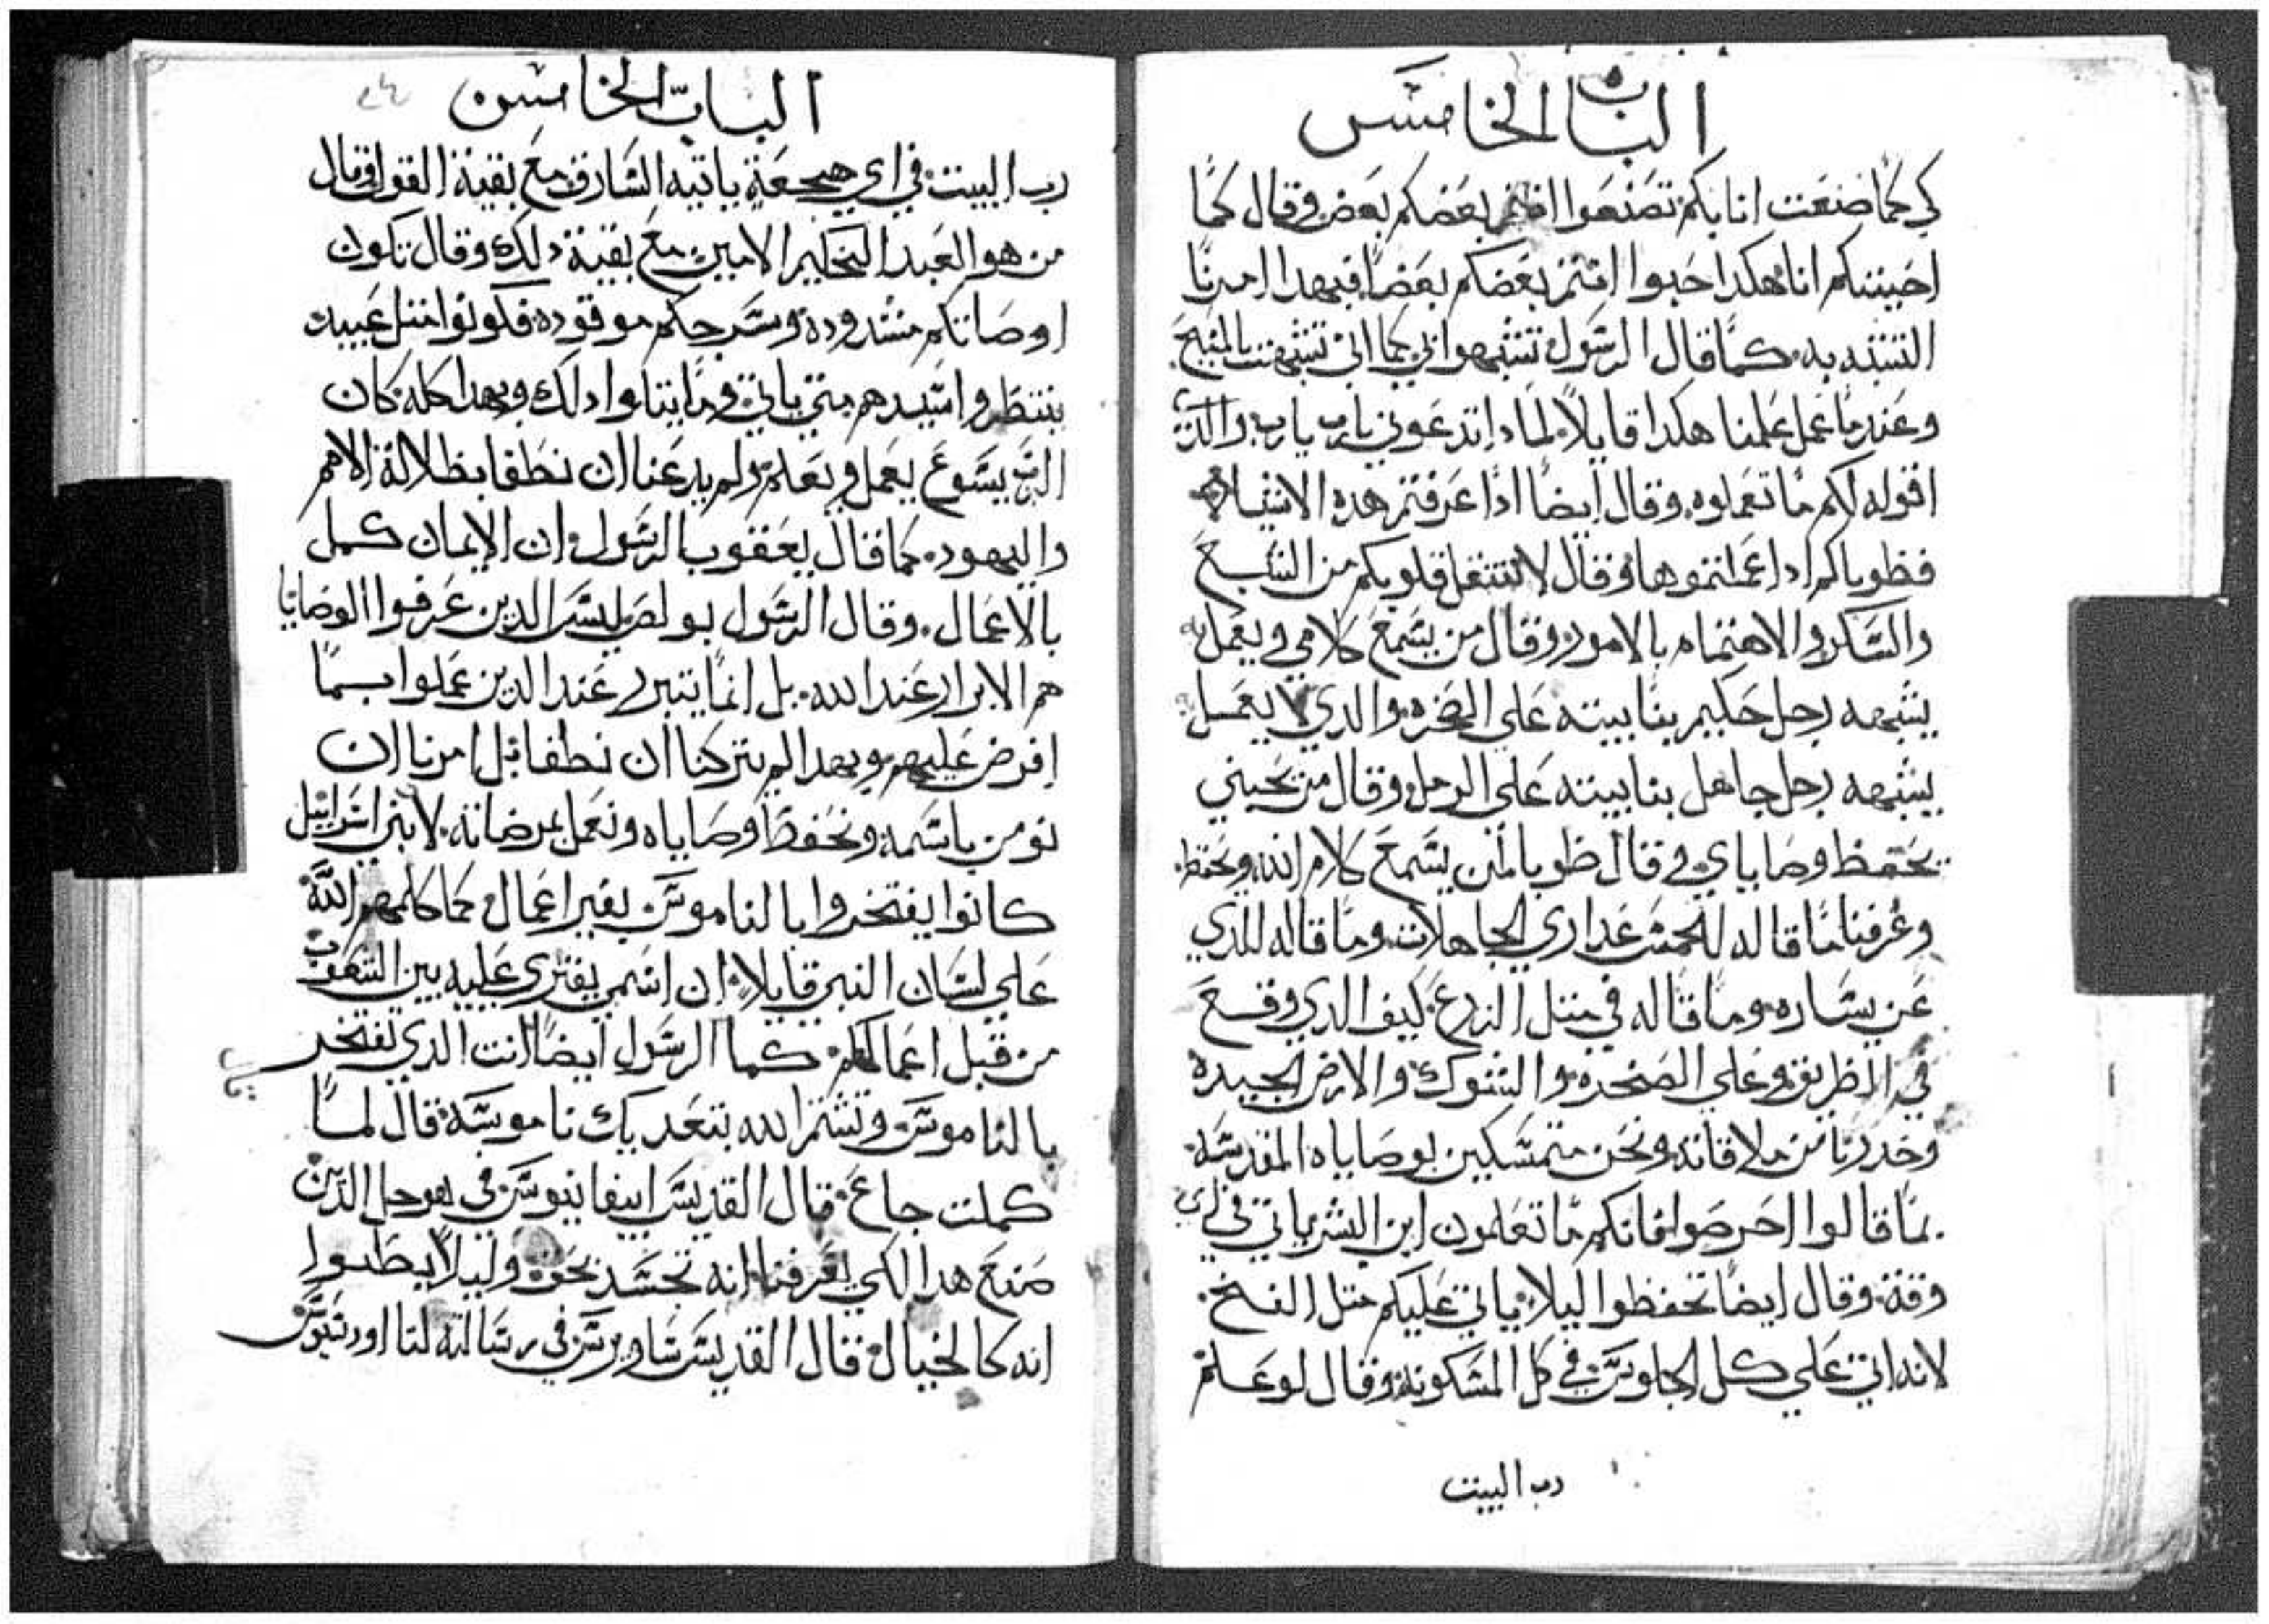 الباب الخامس
كي كما صنعت انا بكم تصنعوا انتم بعضكم بعض وقال كما
احببتكم انا هكدا حبوا انتم بعضكم بعضا فبهدا امرنا
التشبه به كما قال الرسول تشبهوا بي كما اني تشبهت بالمسيح
وعندما عمل علمنا هكدا قايلا لمادا تدعوني يارب يارب والدي
اقوله لكم ما تعملوه وقال ايضا ادا عرفتم هده الاشيا
فطوباكم ادا عملتموها وقال لا تتقل قلوبكم من الشبع
والسكر والاهتمام بالامور وقال من يسمع كلامي ويعمل به
يشبهه رجل حكيم بنا بيته علي الصخره والدي لا يعمل به
يشبهه رجل جاهل بنا بيته علي الرمل وقال من يحبني
يحفظ وصاياي وقال طوبا لمن يسمع كلام الله ويحفظه
وعرفنا ما قاله للخمس عداري الجاهلات وما قاله للدي
عن يساره وما قاله في متل الزرع كيف الدي وقع
في الطريق وعلي الصخره والشوك والارض الجيده
وحدرنا من ملاقاته ونحن متمسكين بوصاياه المقدسه
بما قالوا احرصوا فانكم ما تعلمون ابن البشر ياتي في اي
وقت وقال ايضا تحفظوا ليلا ياتي عليكم متل الفخ
لانه اتي علي كل الجلوس في كل المسكونه وقال لو علم
رب البيت
الباب الخامس
رب البيت في اي هجعة ياتيه السارق مع بقية القول وقال
من هو العبد الحكيم الامين مع بقية دلك وقال تكون
اوصاتكم مشدوده وسرجكم موقوده فكونوا متل عبيد
ينتظروا سيدهم متي ياتي وما يتلوا دلك وبهدا كله كان
الرب يسوع يعمل ويعلم ولم يدعنا ان نطغا بظلالة الامم
واليهود كما قال يعقوب الرسول ان الايمان كمل
بالاعمال وقال الرسول بولص ليس الدين عرفوا الوصايا
هم الابرار عند الله بل انما يتبرر عند الدين عملوا بما
افرض عليهم وبهدا لم يتركنا ان نطغا بل امرنا ان
نومن باسمه ونحفظ وصاياه ونعمل بمرضاته لان بني اسراييل
كانوا يفتخروا بالناموس بغير اعمال كما كلمهم الله
علي لسان النبي قايلا ان اسمي يفتري عليه بين الشعوب
من قبل اعمالكم كما الرسول ايضا انت الدي تفتخر
بالناموس وتشتم الله بتعديك ناموسه قال لما
كملت جاع قال القديس ابيفانيوس في هو حل الدين
صنع هدا لكي يعرفنا انه تجسد بحق وليلا يظنوا
انه كالخيال قال القديس ساويرس في رسالته لتااودسيوس